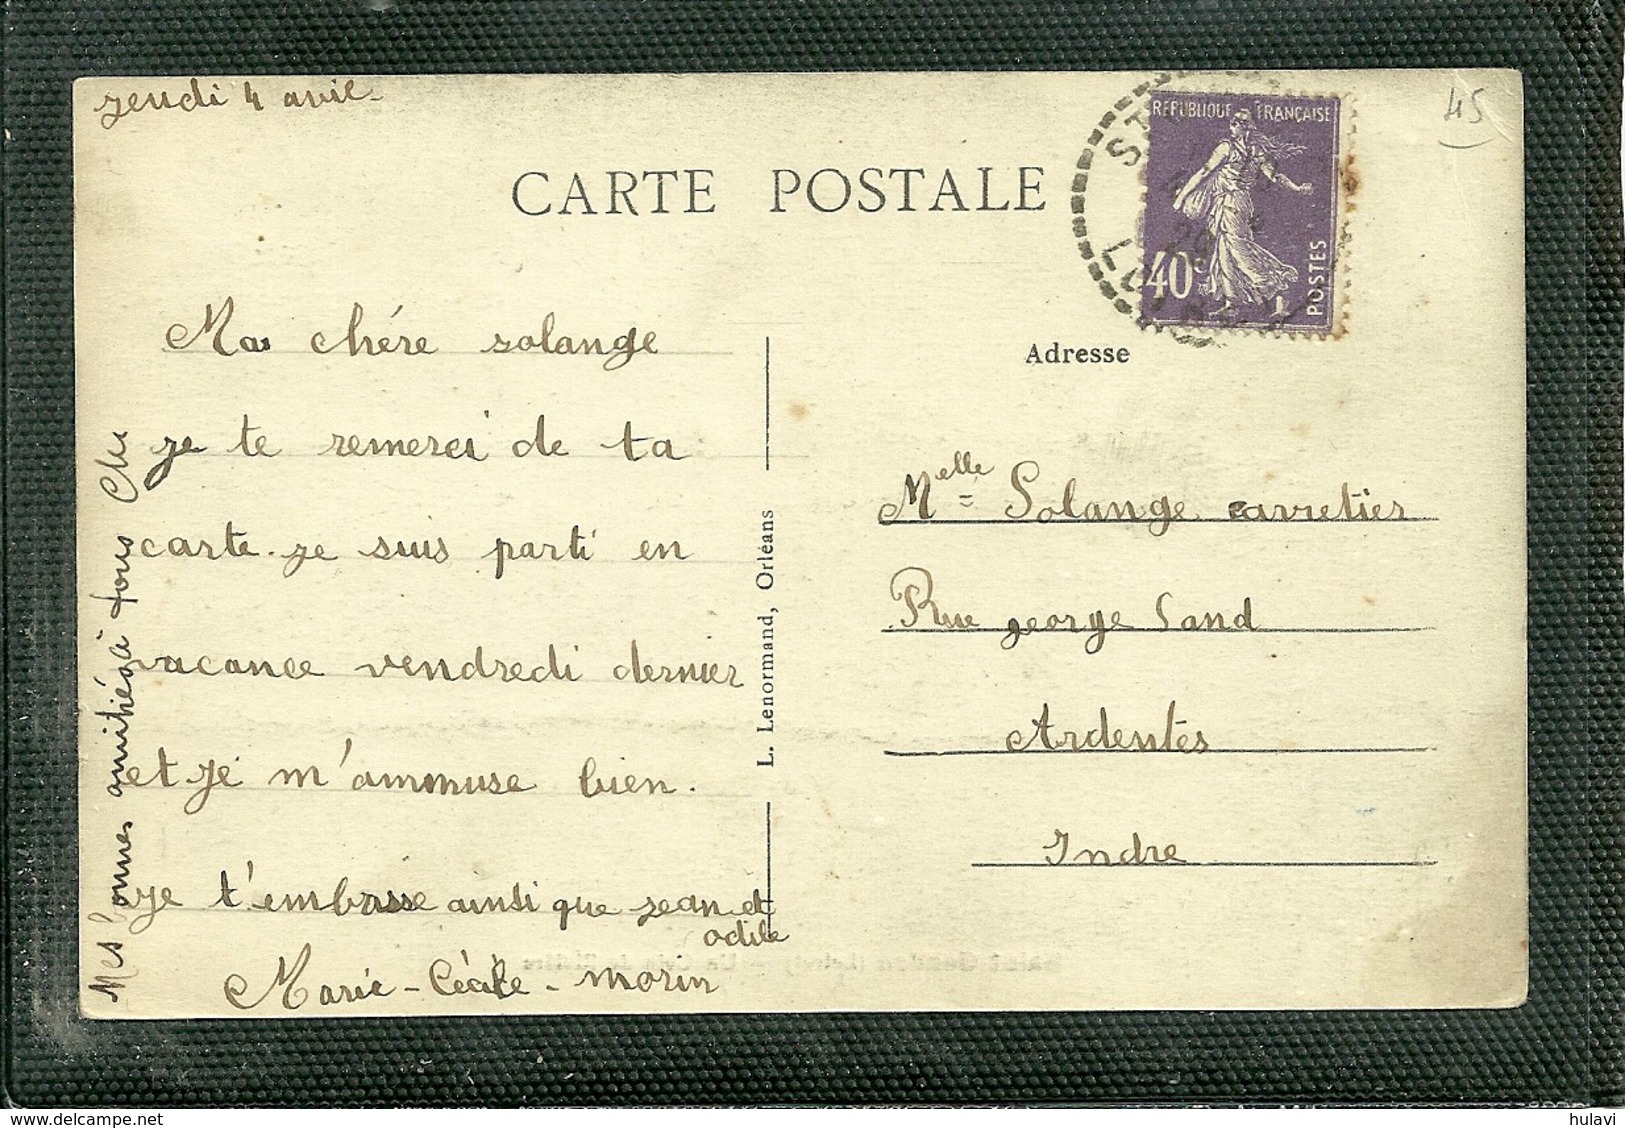 jeudi 4 avril
45
CARTE POSTALE
REPUBLIQUE FRANÇAISE
40c
POSTES
Ma chére solange
je te remerci de ta
carte. je suis parti en
vacance vendredi dernier
et je m'ammuse bien.
je t'embrasse ainsi que jean et
odile
Marie-Cécile-morin
Mes bonnes amitiés à tous
L. Lenormand, Orléans
Adresse
Melle Solange carretier
Rue george Sand
Ardentes
Indre
hulavi